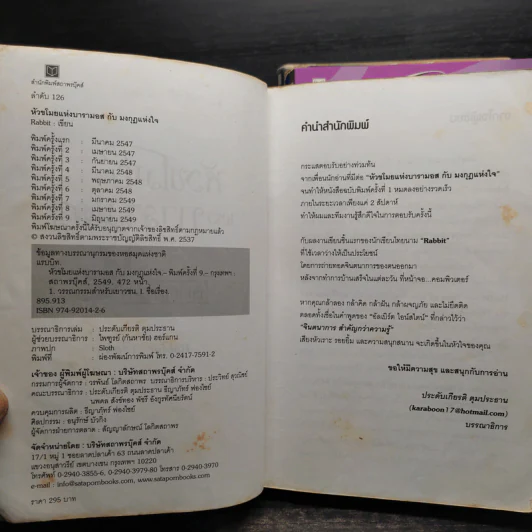 สำนักพิมพ์สถาพรบุ๊คส์
ลำดับ 126
หัวขโมยแห่งบารามอส กับ มงกุฎแห่งใจ
Rabbit : เขียน
พิมพ์ครั้งแรก : มีนาคม 2547
พิมพ์ครั้งที่ 2 : เมษายน 2547
พิมพ์ครั้งที่ 3 : กันยายน 2547
พิมพ์ครั้งที่ 4 : มีนาคม 2548
พิมพ์ครั้งที่ 5 : พฤษภาคม 2548
พิมพ์ครั้งที่ 6 : ตุลาคม 2548
พิมพ์ครั้งที่ 7 : มกราคม 2549
พิมพ์ครั้งที่ 8 : เมษายน 2549
พิมพ์ครั้งที่ 9 : มิถุนายน 2549
พิมพ์โฆษณาครั้งนี้ได้รับอนุญาตจากเจ้าของลิขสิทธิ์ตามกฎหมายแล้ว
© สงวนลิขสิทธิ์ตามพระราชบัญญัติลิขสิทธิ์ พ.ศ. 2537
ข้อมูลทางบรรณานุกรมของหอสมุดแห่งชาติ
แรบบิท.
หัวขโมยแห่งบารามอส กับ มงกุฎแห่งใจ.- พิมพ์ครั้งที่ 9.- กรุงเทพฯ :
สถาพรบุ๊คส์, 2549. 472 หน้า.
1. วรรณกรรมสำหรับเยาวชน. I. ชื่อเรื่อง.
895.913
ISBN 974-92014-2-6
บรรณาธิการเล่ม : ประดับเกียรติ ตุมประธาน
ผู้ช่วยบรรณาธิการ : ไพฑูรย์ (กันหาชัย) ฮอร์แกน
ภาพปก : Sloth
พิมพ์ที่ : ผ่องพัฒน์การพิมพ์ โทร. 0-2417-7591-2
เจ้าของ ผู้พิมพ์ผู้โฆษณา : บริษัทสถาพรบุ๊คส์ จำกัด
กรรมการผู้จัดการ : วรพันธ์ โลกิตสถาพร บรรณาธิการบริหาร : ประวิทย์ สุวณิชย์
คณะบรรณาธิการ : ประดับเกียรติ ตุมประธาน ธีญาภัทร์ ผ่องใชย์
ควบคุมการผลิต : ธีญาภัทร์ ผ่องใชย์
ศิลปกรรม : อนุรักษ์ บัวกิ่ง
ผู้จัดการฝ่ายการตลาด : สัญญาลักษณ์ โลกิตสถาพร
จัดจำหน่ายโดย : บริษัทสถาพรบุ๊คส์ จำกัด
17/1 หมู่ 1 ซอยลาดปลาเค้า 63 ถนนลาดปลาเค้า
แขวงอนุสาวรีย์ เขตบางเขน กรุงเทพฯ 10220
โทรศัพท์ 0-2940-3855-6, 0-2940-3979-80 โทรสาร 0-2940-3970
e-mail : info@satapornbooks.com, www.satapornbooks.com
ราคา 295 บาท
คำนำสำนักพิมพ์
กระแสตอบรับอย่างท่วมท้น
จากเพื่อนนักอ่านที่มีต่อ "หัวขโมยแห่งบารามอส กับ มงกุฎแห่งใจ"
จนทำให้หนังสือฉบับพิมพ์ครั้งที่ 1 หมดลงอย่างรวดเร็ว
ภายในระยะเวลาเพียงแค่ 2 สัปดาห์
ทำให้ผมและทีมงานรู้สึกดีใจในการตอบรับครั้งนี้
กับผลงานเขียนชิ้นแรกของนักเขียนไทยนาม "Rabbit"
ที่ใช้เวลาว่างให้เป็นประโยชน์
โดยการถ่ายทอดจินตนาการของตนออกมา
หลังจากทำการบ้านเสร็จในแต่ละวัน ที่หน้าจอ...คอมพิวเตอร์
หากคุณกล้าลอง กล้าคิด กล้าฝัน กล้าผจญภัย และไม่ยึดติด
ตลอดทั้งเชื่อในคำพูดของ "อัลเบิร์ต ไอน์สไตน์" ที่กล่าวไว้ว่า
"จินตนาการ สำคัญกว่าความรู้"
เสียงหัวเราะ รอยยิ้ม และความสนุกสนาน จะเกิดขึ้นในหัวใจของคุณ
ขอให้มีความสุข และสนุกกับการอ่าน
ประดับเกียรติ ตุมประธาน
(karaboon17@hotmail.com)
บรรณาธิการ